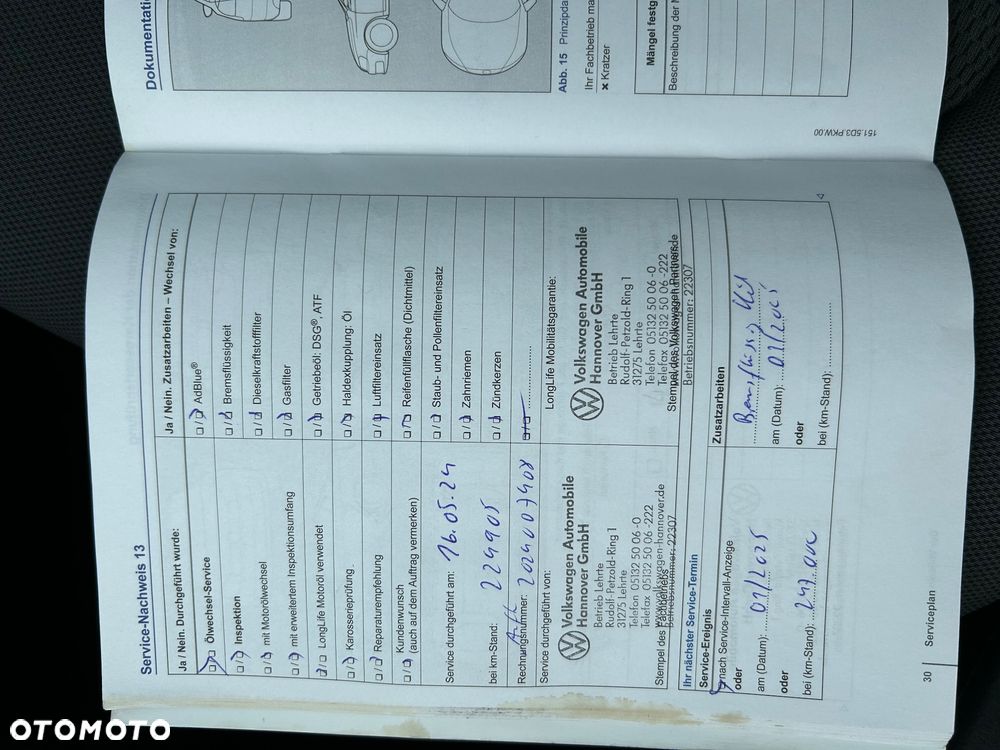 Dokumentati
Abb. 15 Prinzipda
Ihr Fachbetrieb ma
× Kratzer
Mängel festg
Beschreibung der M
151.5D3.PKW.00
Service-Nachweis 13
Ja / Nein. Durchgeführt wurde:
Ölwechsel-Service
Inspektion
mit Motorölwechsel
mit erweitertem Inspektionsumfang
LongLife Motoröl verwendet
Karosserieprüfung
Reparaturempfehlung
Kundenwunsch
(auch auf dem Auftrag vermerken)
Service durchgeführt am: 16.05.24
bei km-Stand: 224905
Rechnungsnummer: 2024007408
Service durchgeführt von:
Volkswagen Automobile
Hannover GmbH
Betrieb Lehrte
Rudolf-Petzold-Ring 1
31275 Lehrte
Telefon 05132 50 06-0
Telefax 05132 50 06-222
www.volkswagen-hannover.de
Stempel des Fachbetriebs
Betriebsnummer: 22307
Ja / Nein. Zusatzarbeiten – Wechsel von:
AdBlue®
Bremsflüssigkeit
Dieselkraftstofffilter
Gasfilter
Getriebeöl: DSG®, ATF
Haldexkupplung: Öl
Luftfiltereinsatz
Reifenfüllflasche (Dichtmittel)
Staub- und Pollenfiltereinsatz
Zahnriemen
Zündkerzen
LongLife Mobilitätsgarantie:
Volkswagen Automobile
Hannover GmbH
Betrieb Lehrte
Rudolf-Petzold-Ring 1
31275 Lehrte
Telefon 05132 50 06-0
Telefax 05132 50 06-222
Stempel des Volkswagen Partners
Betriebsnummer: 22307
Ihr nächster Service-Termin
Service-Ereignis
nach Service-Intervall-Anzeige
oder
am (Datum): 01/2025
oder
bei (km-Stand): 247.000
Zusatzarbeiten
am (Datum): 01/2025
oder
bei (km-Stand):
30
Serviceplan
OTOMOTO